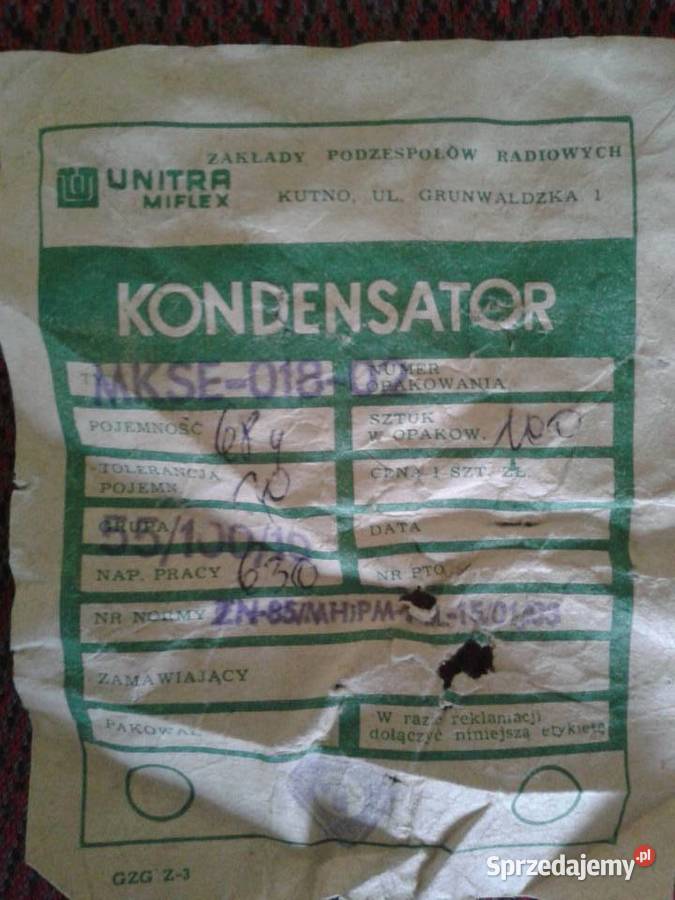 ZAKŁADY PODZESPOŁÓW RADIOWYCH
UNITRA
MIFLEX
KUTNO, UL. GRUNWALDZKA 1
KONDENSATOR
MKSE-018-02
NUMER
OPAKOWANIA
POJEMNOŚĆ 68
SZTUK
W OPAKOW. 100
TOLERANCJA
POJEMN.
CENA 1 SZT. ZŁ.
GRUPA 55/100/10
DATA
NAP. PRACY 630
NR PTO
NR NORMY ZN-85/MHiPM
ZAMAWIAJĄCY
PAKOWAŁ
W razie reklamacji
dołączyć niniejszą etykietę
GZG Z-3
Sprzedajemy.pl